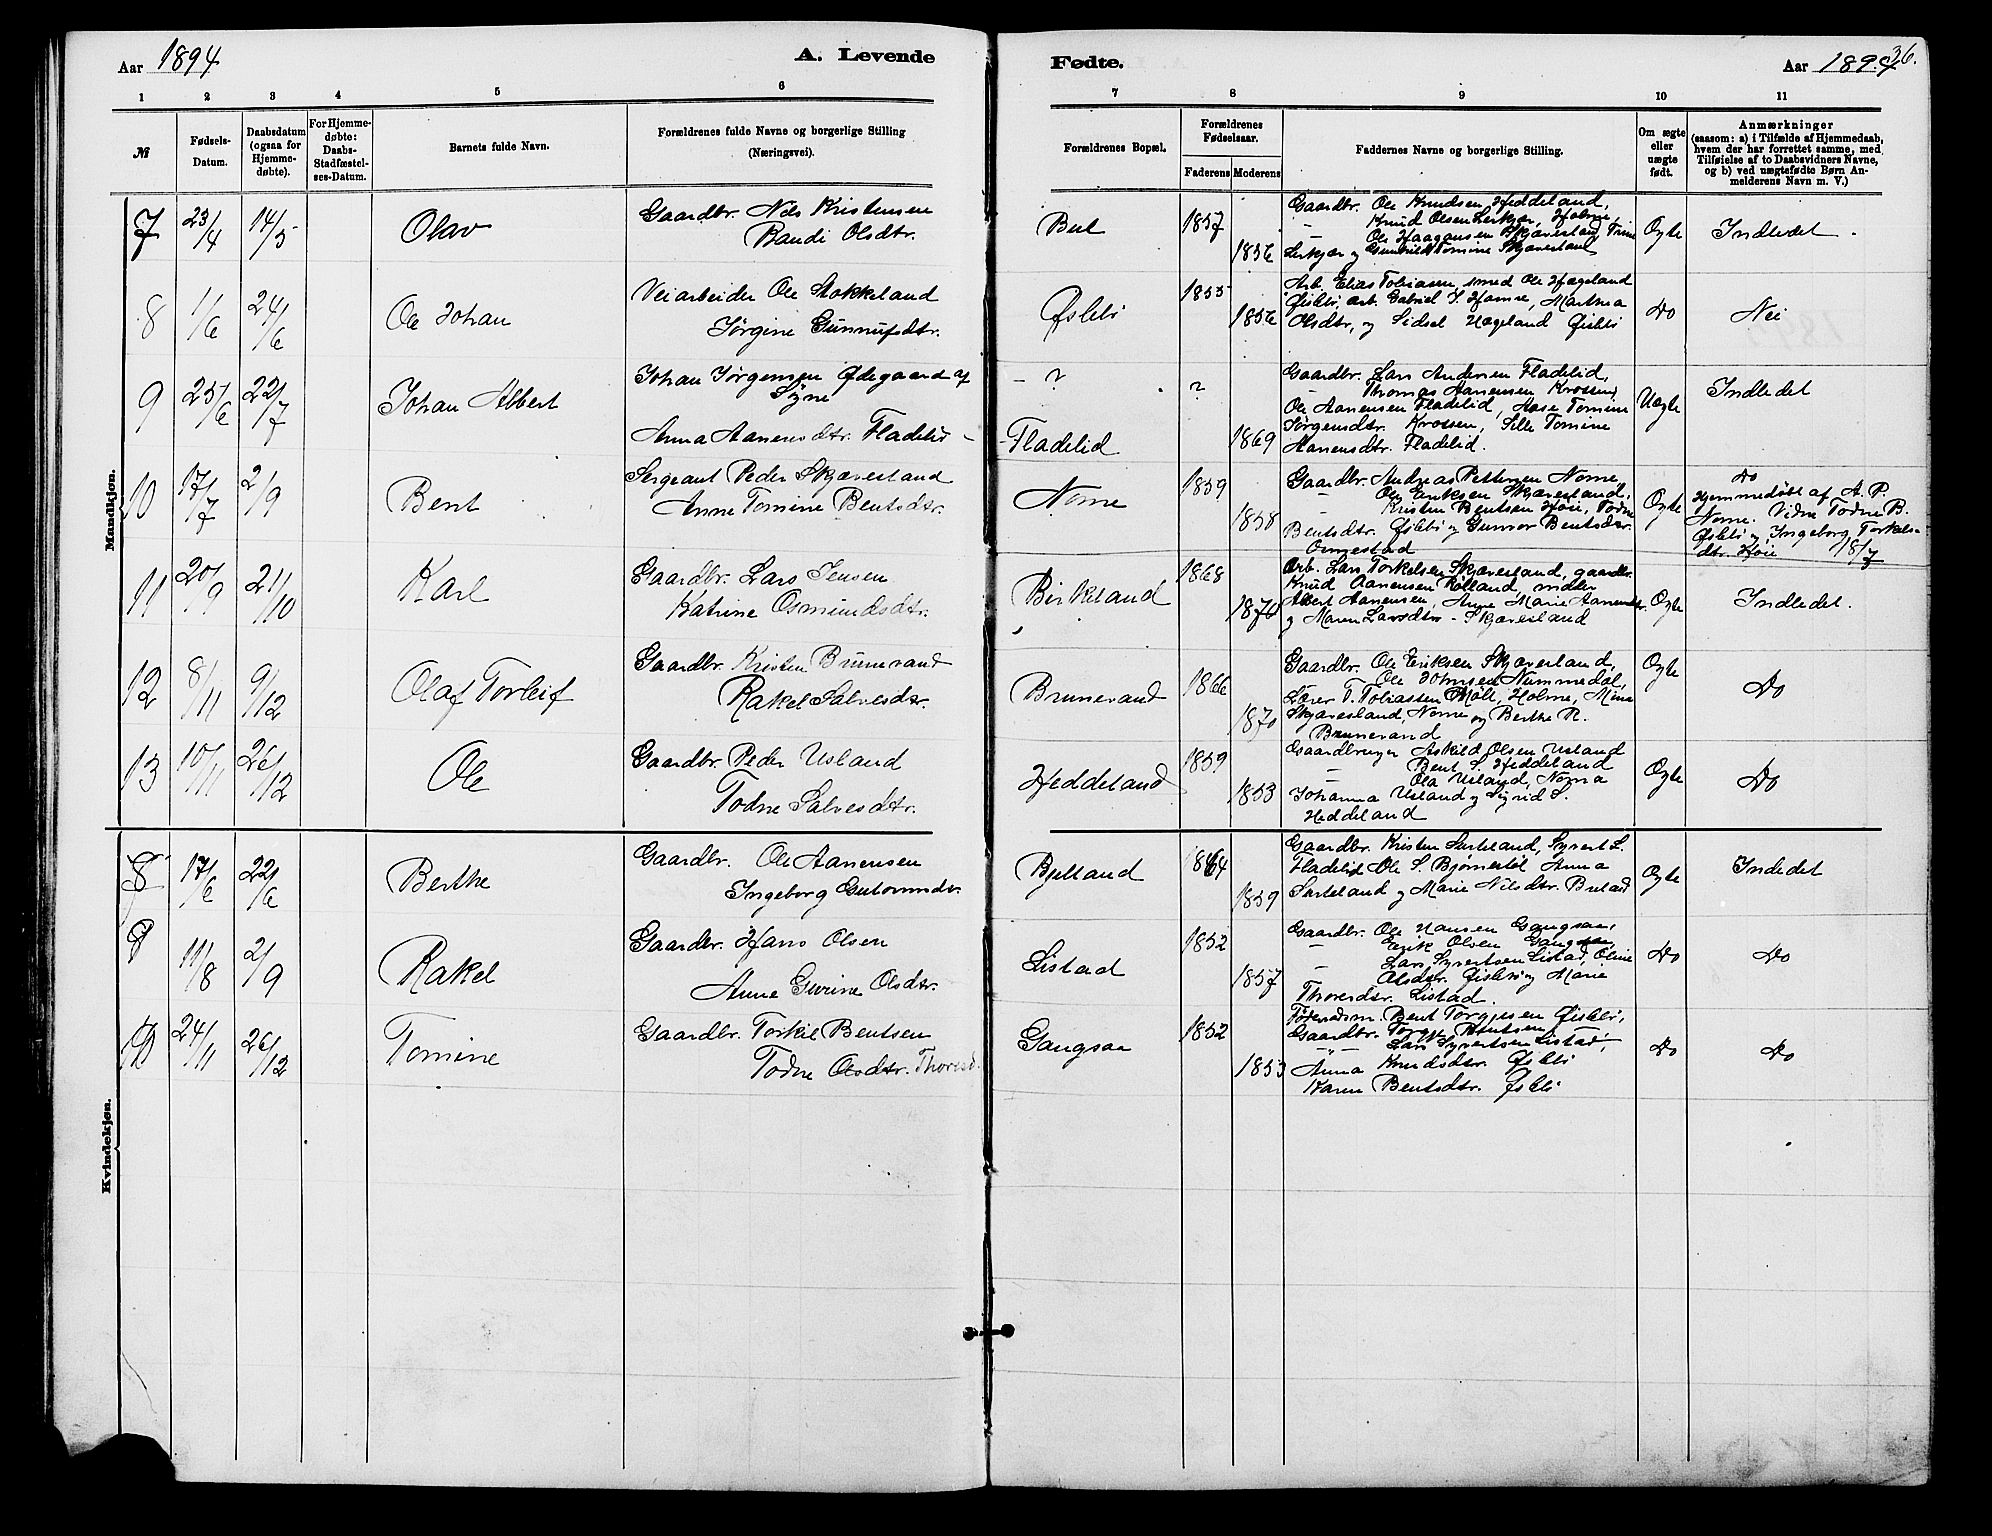 Aar 1894
A. Levende
Fødte.
Aar 1894
36.
1 2 3 4 5 6
7 8 9 10 11
№
Fødsels-
Datum.
Daabsdatum
(ogsaa for
Hjemme-
døbte).
For Hjemme-
døbte:
Daabs-
Stadfæstel-
ses-Datum.
Barnets fulde Navn.
Forældrenes fulde Navne og borgerlige Stilling
(Næringsvei).
Forældrenes Bopæl.
Forældrenes
Fødselsaar.
Faderens Moderens
Faddernes Navne og borgerlige Stilling.
Om ægte
eller
uægte
født.
Anmærkninger
(saasom: a) i Tilfælde af Hjemmedaab,
hvem der har forrettet samme, med
Tilføielse af to Daabsvidners Navne,
og b) ved uægtefødte Børn An-
melderens Navn m. V.)
Mandkjøn.
7 23/4 14/5 Olav
Gaardbr. Nils Kristensen
Randi Olsdtr.
Bue
1857
1856
Gaardbr. Ole Knudsen Heddeland,
— Knud Olsen Lerkjær, Holme,
Ole Haagansen Skjævesland, Trine
Lerkjær og Gunhild Tomine Skjævesland
Ægte
Indledet.
8 1/6 24/6 Ole Johan
Veiarbeider Ole Stokkeland
Jørgine Gunnufsdtr.
Øslebö
1855
1856
Arb. Elias Tobiasen, smed Ole Hægeland
Øislebö arb. Gabriel J. Hamre, Martina
Olsdtr, og Sidsel Hægeland Øislebö
Do
Nei
9 25/6 22/7 Johan Albert
Johan Jørgensen Ødegaard af
Søgne
Anna Aanensdtr. Fladelid -
- ?
- Fladelid
?
1869
Gaardbr. Lars Andersen Fladelid,
— Thomas Aanensen Krossen,
Ole Aanensen Fladelid, Aase Tomine
Jørgensdtr. Krossen, Sille Tomine
Aanensdtr. Fladelid.
Uægte
Indledet
10 17/7 2/9 Bent
Sergeant Peder Skjævesland
Anne Tomine Bentsdtr.
Nome
1859
1858
Gaardbr. Andreas Pettersen Nome,
— Ole Eriksen Skjævesland,
— Kristen Bentsen Høie, Todne
Bentsdtr. Øislebö og Gunvor Bentsdtr.
Ormestad
Ægte
Do
Hjemmedøbt af A. P.
Nome. Vidne Todne B.
Øslebö og Ingeborg Torkels-
dtr. Høie 18/7
11 20/9 21/10 Karl
Gaardbr. Lars Jensen
Katrine Osmundsdtr.
Birkeland
1868
1870
Arb. Lars Torkelsen Skjævesland, gaardbr.
Knud Aanensen Rølland, maler
Albert Aanensen, Anne Marie Aanensdtr.
og Maren Larsdtr - Skjævesland
Ægte
Indledet.
12 8/11 9/12 Olaf Torleif
Gaardbr. Kristen Brunevand
Rakel Salvesdtr.
Brunevand
1866
1870
Gaardbr. Ole Eriksen Skjævesland,
Ole Johnsen Nummedal,
Lærer T. Tobiassen Möll, Holme, Mina
Skjævesland, Nome og Berthe R.
Brunevand
Ægte
Do
13 10/11 26/12 Ole
Gaardbr. Peder Usland
Todne Salvesdtr.
Heddeland
1859
1853
Gaardbruger Askild Olsen Usland
— Bent S. Heddeland
— Ola Usland, Norna
Johanna Usland og Sigrid S.
Heddeland
Ægte
Do
Kvindekjøn.
8 17/6 22/6 Berthe
Gaardbr. Ole Aanensen
Ingeborg Gutormsdtr.
Bjelland
1864
1859
Gaardbr. Kristen Surteland, Syvert L.
Fladelid Ole S. Bjørnestöl Anna
Surteland og Marie Nilsdtr. Bueland
Ægte
Indledet
9 11/8 2/9 Rakel
Gaardbr. Hans Olsen
Anne Gurine Olsdtr.
Listad
1852
1857
Gaardbr. Ole Hansen Gangsaa,
— Erik Olsen Gangsaa,
— Lars Syvertsen Listad, Oline
Olsdtr. Øislebö og Marie
Thoresdtr. Listad.
Do
Do
10 24/11 26/12 Tomine
Gaardbr. Torkil Bentsen
Todne Olsdtr. Thoresd.
Gangsaa
1852
1853
Føderaadsm. Bent Torgjusen Øislebö,
Gaardbr. Torgje Bentsen
—"— Lars Syvertsen Listad,
Anna Knudsdtr. Øislebö
Karen Bentsdtr. Øislebö
Do
Do